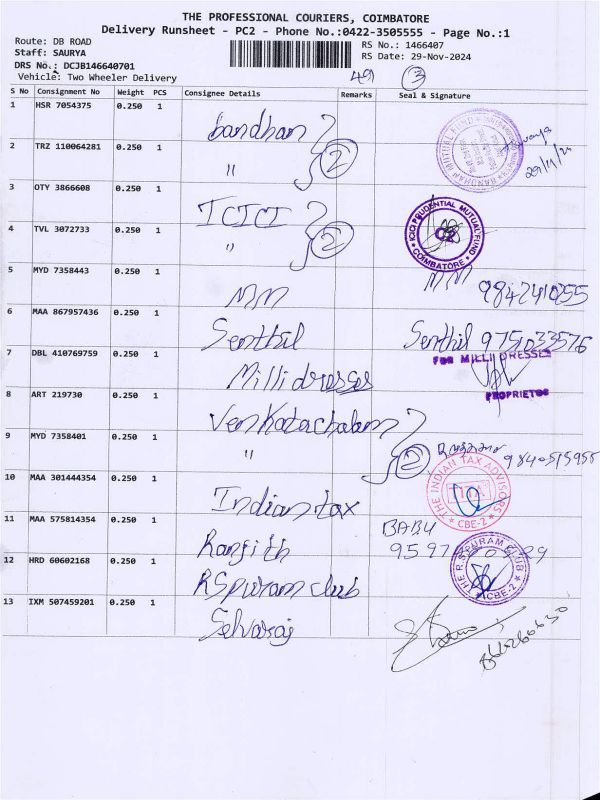 THE PROFESSIONAL COURIERS, COIMBATORE
Delivery Runsheet - PC2 - Phone No.:0422-3505555 - Page No.:1
Route: DB ROAD
Staff: SAURYA
DRS No.: DCJB146640701
Vehicle: Two Wheeler Delivery
RS No.: 1466407
RS Date: 29-Nov-2024
49 3
S No Consignment No Weight PCS Consignee Details Remarks Seal & Signature
1 HSR 7054375 0.250 1 bandhan
BANDHAN MUTUAL FUND
29/11/24
2 TRZ 110064281 0.250 1 " 2
3 OTY 3866608 0.250 1 ICICI
ICICI PRUDENTIAL MUTUAL FUND
C2
COIMBATORE
4 TVL 3072733 0.250 1 " 2
5 MYD 7358443 0.250 1 MM MM
9842410255
6 MAA 867957436 0.250 1 Senthil Senthil 9751033576
7 DBL 410769759 0.250 1 Millidresses
FOR MILLI DRESSES
PROPRIETOR
8 ART 219730 0.250 1 Venkatachalam
9 MYD 7358401 0.250 1 " 2
9840515955
10 MAA 301444354 0.250 1 Indian tax
THE INDIAN TAX ADVISORS
CBE-2
11 MAA 575814354 0.250 1 Ranjith
BABU
12 HRD 60602168 0.250 1 RSpuram club
THE R.S.PURAM CLUB
CBE-2
13 IXM 507459201 0.250 1 Selvaraj